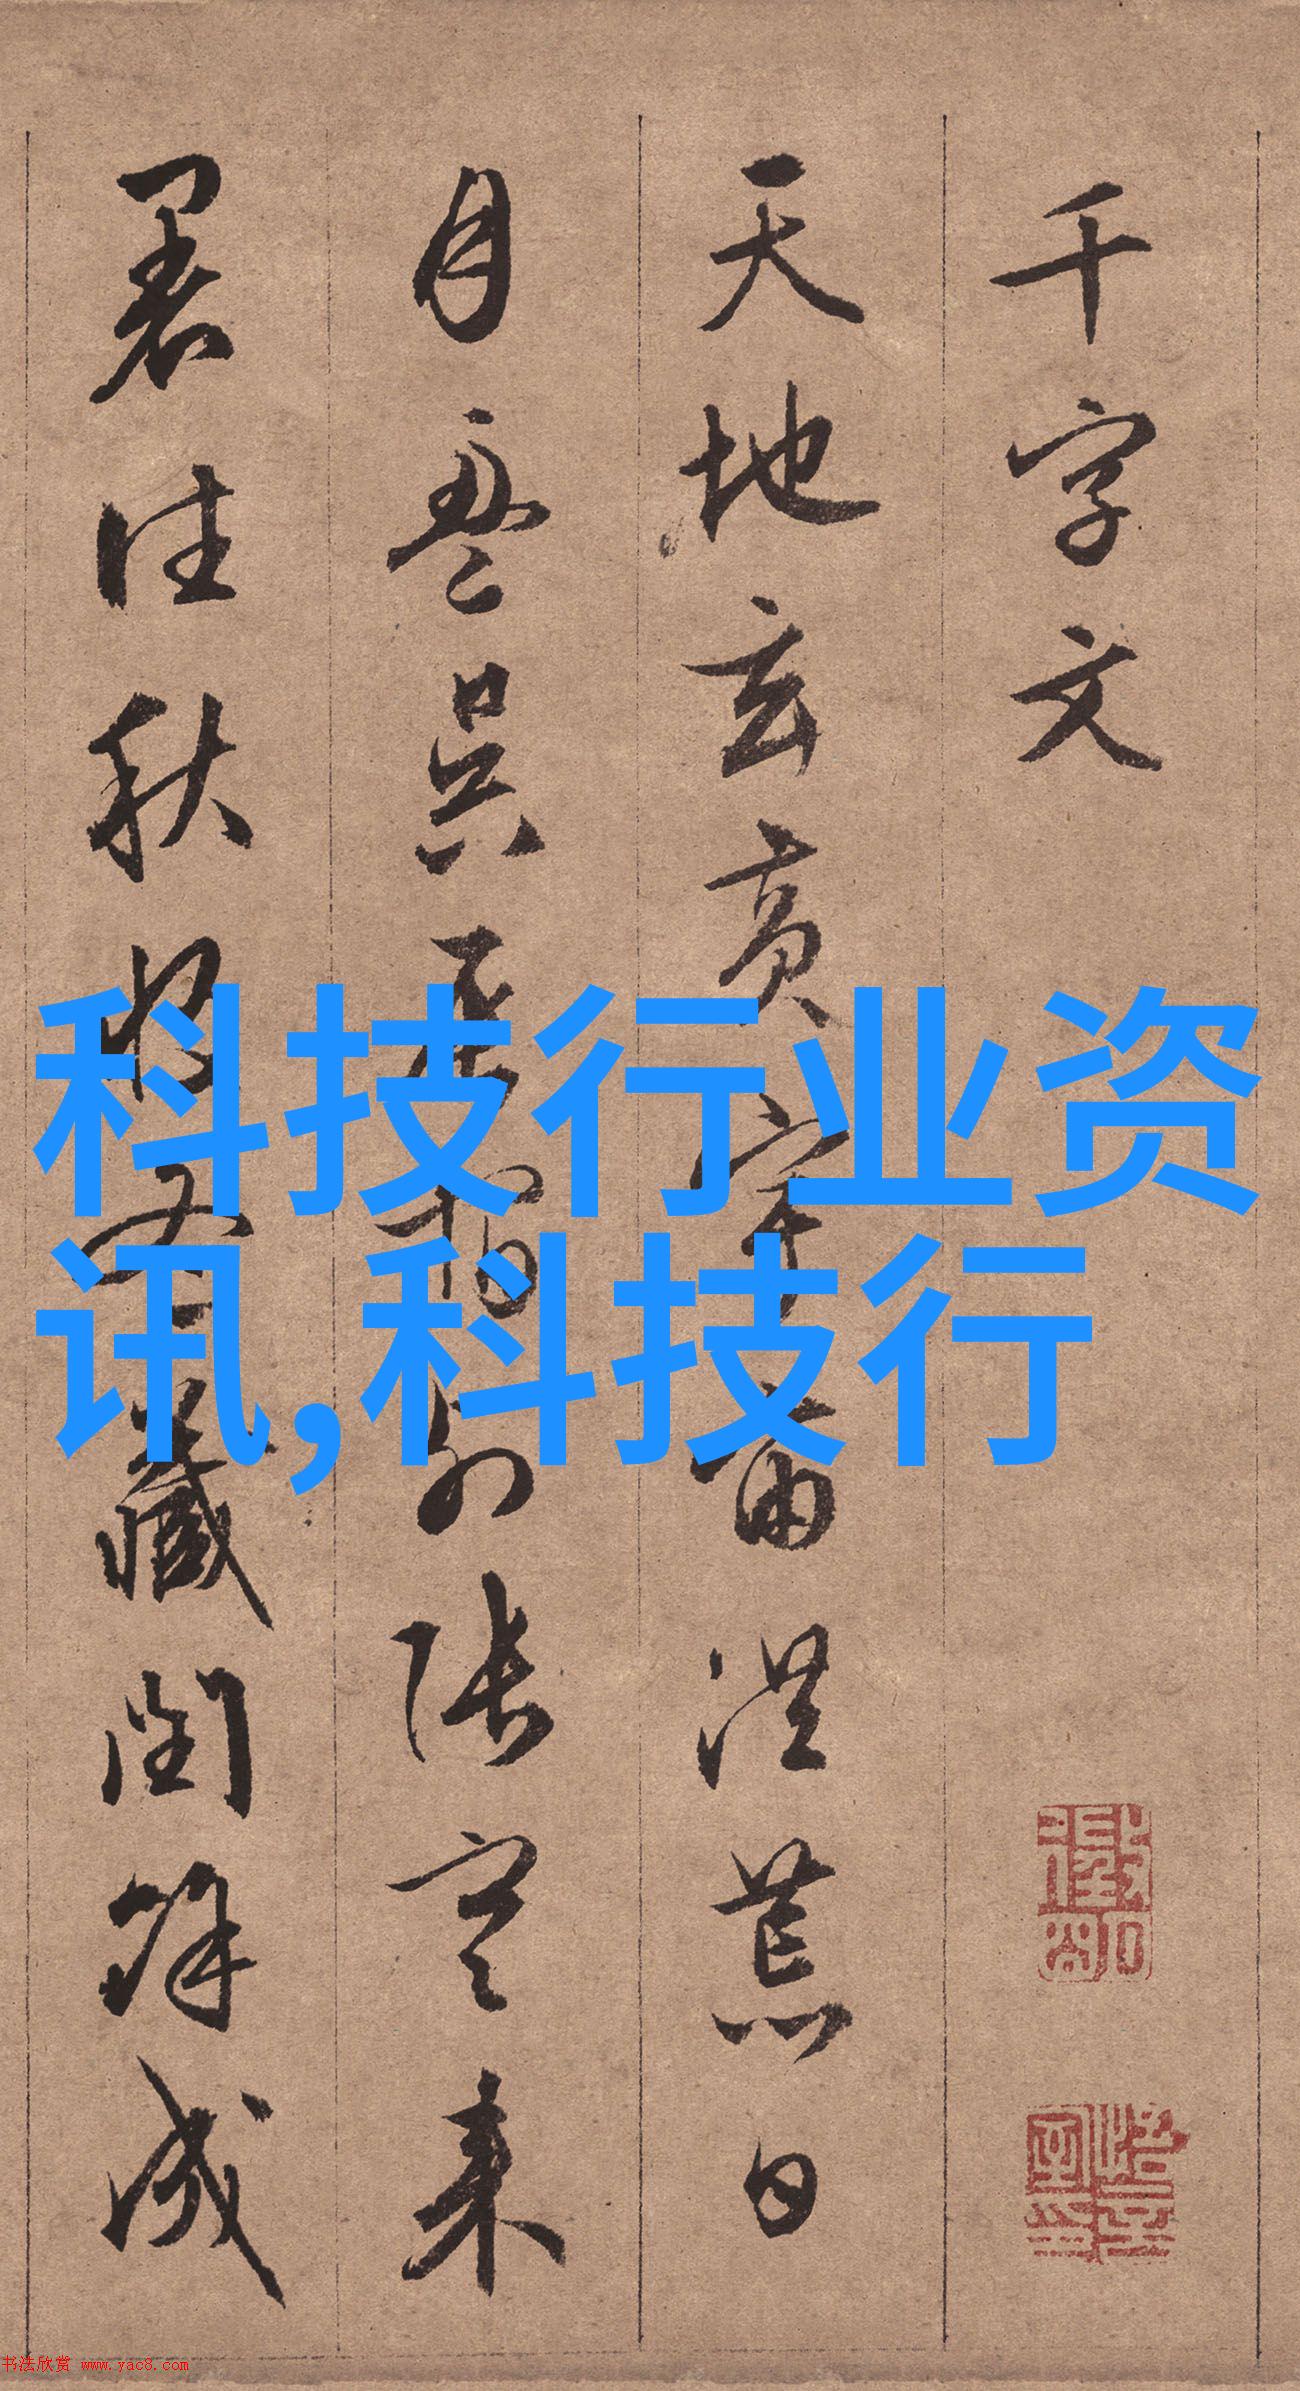 千字文
天地玄黄宇宙洪荒日
月盈昃辰宿列張寒来
暑往秋收冬藏閏餘成
科技行业资
讯,科技行
书法欣赏 www.yac8.com